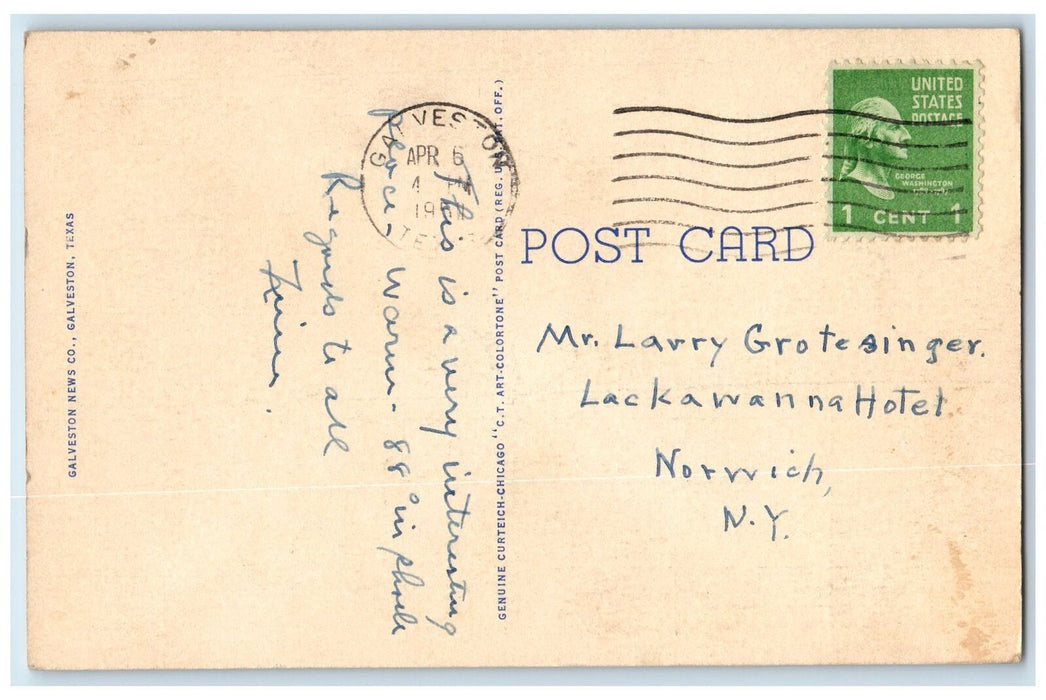 GALVESTON NEWS CO., GALVESTON, TEXAS
This is a very interesting
place, Warm - 88° in shade
Regards to all
GENUINE CURTEICH-CHICAGO "C.T. ART-COLORTONE" POST CARD (REG. U.S. PAT. OFF.)
GALVESTON
APR 6
4
19
TEX
UNITED
STATES
POSTAGE
GEORGE
WASHINGTON
1 CENT 1
POST CARD
Mr. Larry Grotesinger.
Lackawanna Hotel
Norwich,
N.Y.